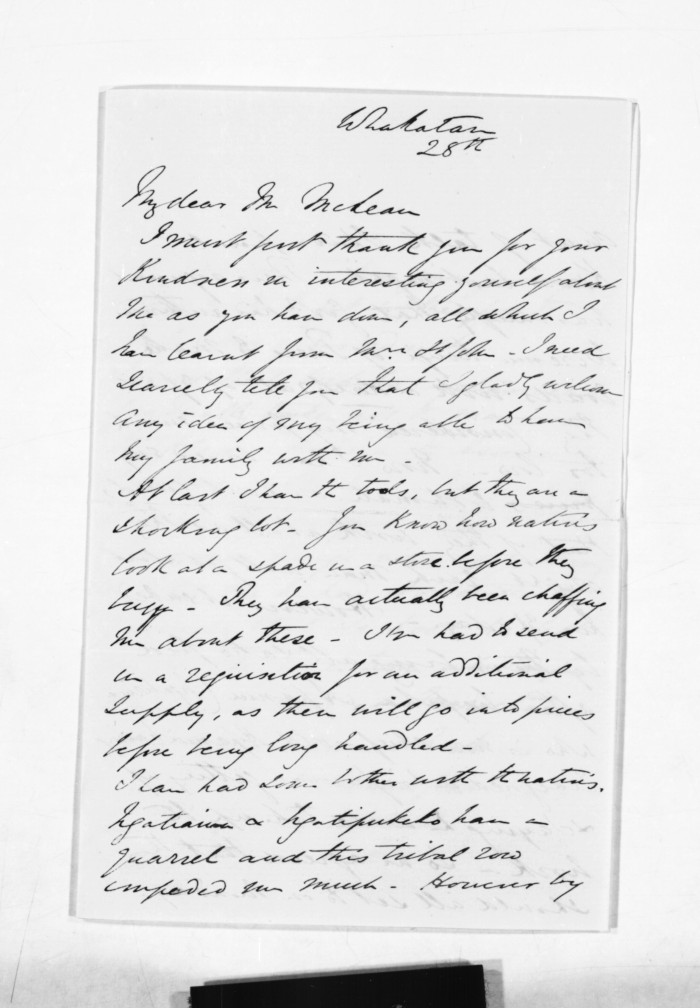 Whakatan
28th
My dear Mr McLean
I must first thank you for your
Kindness in interesting yourself about
me as you have done, all which I
have learnt from Mrs St John - I need
scarcely tell you that I gladly welcome
any idea of my being able to have
my family with me -
At last I have the tools, but they are a
shocking lot - You know how natives
look at a spade in a store before they
buy - They have actually been chaffing
me about these - I have had to send
in a requisition for an additional
supply, as these will go into pieces
before being long handled -
I have had some bother with the natives.
Ngatiawa & Ngatipukeko have a
quarrel and this tribal row
impeded me much - However by